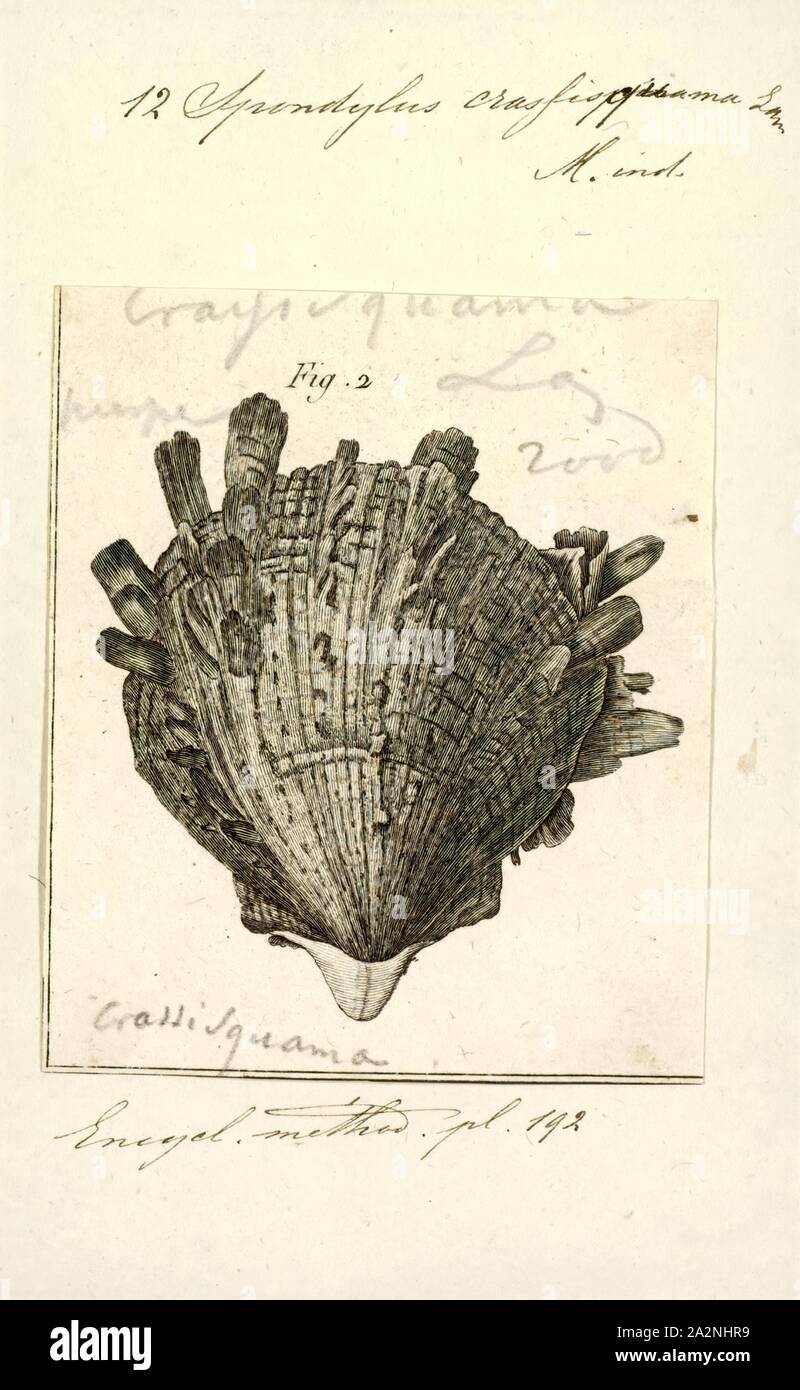 12 Spondylus crassisquama Lam
M. ind.
crassisquama
Fig. 2
La
2000
crassisquama
Encycl. method. pl. 192
alamy
Image ID: A2NHR9
www.alamy.com